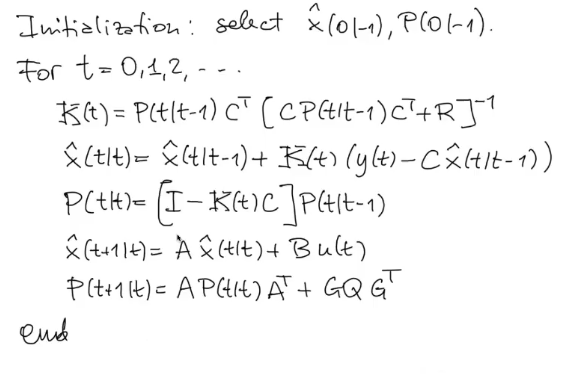 Initialization: select x̂(0|-1), P(0|-1).
For t=0,1,2, ---
K(t)= P(t|t-1) Cᵀ [CP(t|t-1)Cᵀ+R]⁻¹
x̂(t|t)= x̂(t|t-1)+ K(t) (y(t)-Cx̂(t|t-1))
P(t|t)= [I-K(t)C]P(t|t-1)
x̂(t+1|t)= A x̂(t|t)+ B u(t)
P(t+1|t)= AP(t|t)Aᵀ + GQGᵀ
end